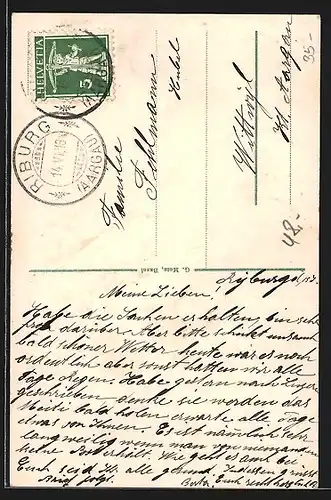 HELVETIA
5
RYBURG
14.VI.16
(AARGAU)
Familie
Fehlmann
Hubel
Wittwil
Kt. Aargau
35.-
48.-
G. Metz, Basel
Ryburg
Meine Lieben!
Habe die Sachen erhalten, bin sehr
froh darüber. Aber bitte schickt uns auch
bald schöner Wetter heute war es noch
ordentlich aber sonst hatten wir alle
Tage Regen. Habe gestern nach
geschrieben denke sie werden das
Meiti bald holen erwarte alle Tage
etwas von Ihnen. Es ist nämlich sehr
langweilig wenn man von niemandem
keine Post erhält. Wie geht es auch bei
Euch seid Ihr alle gesund. Indessen grüsst
Euch recht herzlich
Brief folgt. Berta.